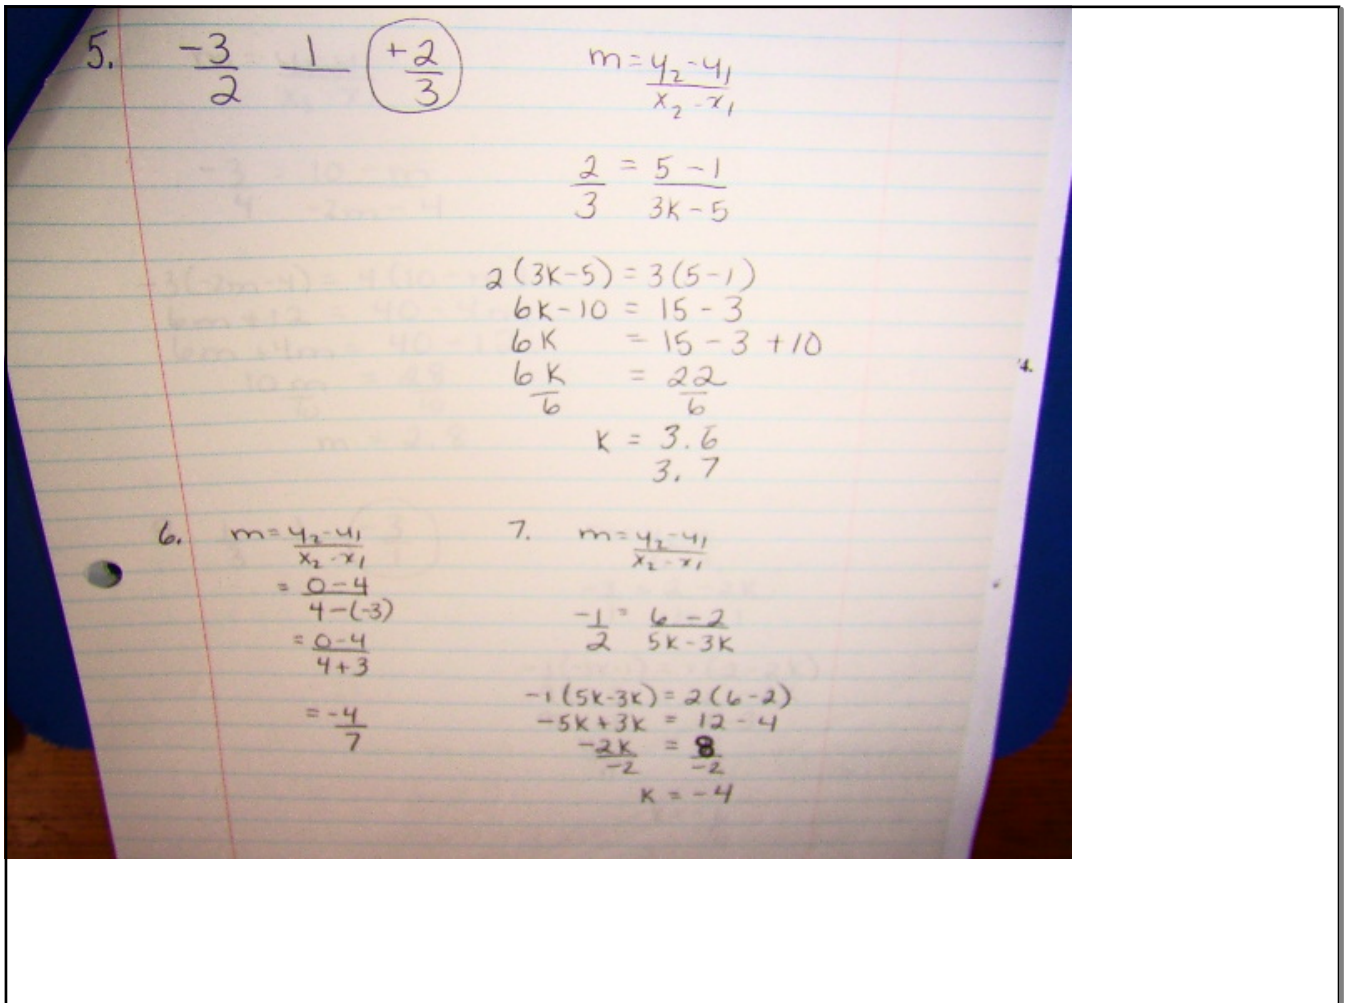 5. -3/2 1/ +2/3
m = y₂-y₁/x₂-x₁
2/3 = 5-1/3K-5
2(3K-5) = 3(5-1)
6K-10 = 15-3
6K = 15-3+10
6K/6 = 22/6
K = 3.6
3.7
6. m = y₂-y₁/x₂-x₁
= 0-4/4-(-3)
= 0-4/4+3
= -4/7
7. m = y₂-y₁/x₂-x₁
-1/2 = 6-2/5K-3K
-1(5K-3K) = 2(6-2)
-5K+3K = 12-4
-2K/-2 = 8/-2
K = -4